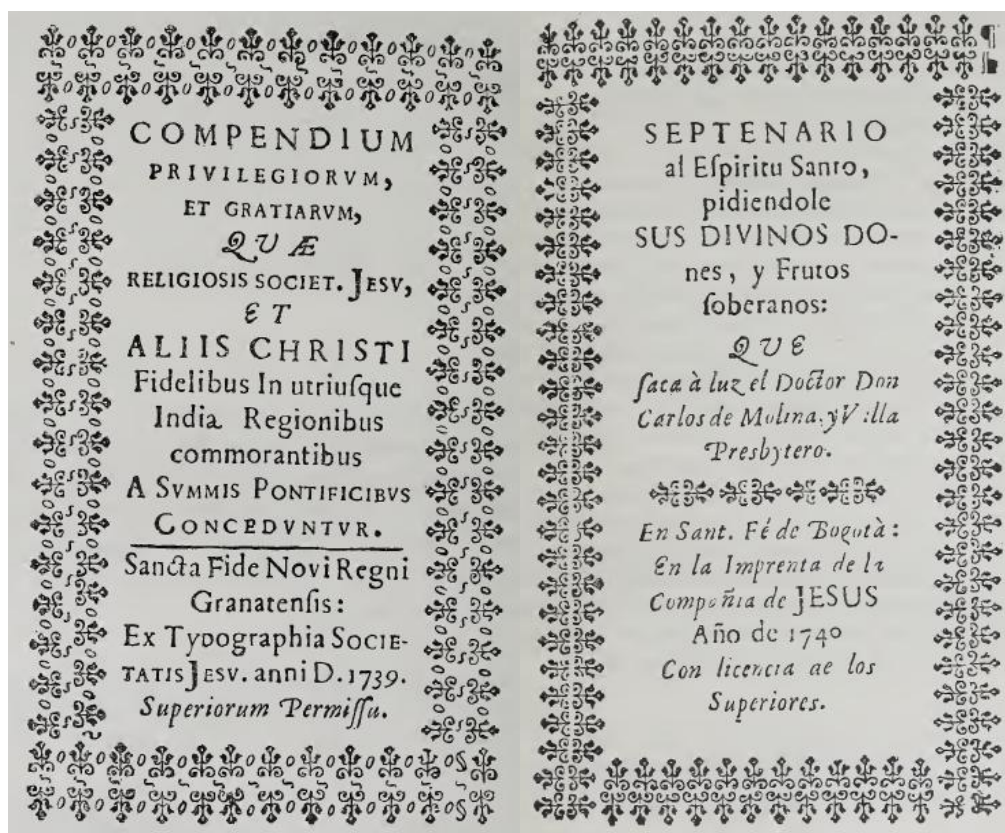 COMPENDIUM
PRIVILEGIORVM,
ET GRATIARVM,
QUÆ
RELIGIOSIS SOCIET. JESV,
ET
ALIIS CHRISTI
Fidelibus In utriuſque
India Regionibus
commorantibus
A SVMMIS PONTIFICIBVS
CONCEDVNTVR.
Sancta Fide Novi Regni
Granatenſis:
Ex Typographia SOCIE-
TATIS JESV. anni D. 1739.
Superiorum Permiſſu.
SEPTENARIO
al Eſpiritu Santo,
pidiendole
SUS DIVINOS DO-
nes, y Frutos
ſoberanos:
QUE
ſaca à luz el Doctor Don
Carlos de Molina, y V illa
Presbytero.
En Sant. Fé de Bogotà:
En la Imprenta de la
Compañia de JESUS
Año de 1740
Con licencia de los
Superiores.